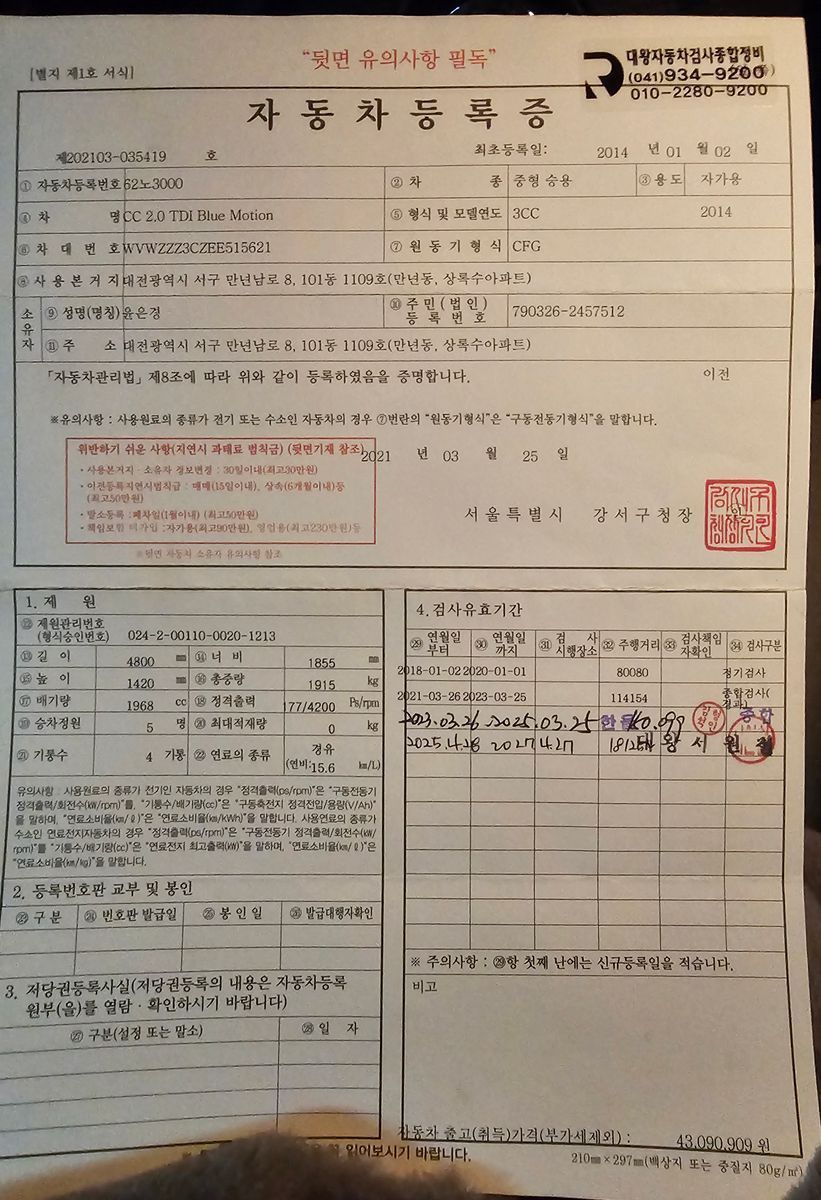 [별지 제1호 서식]
"뒷면 유의사항 필독"
대왕자동차검사종합정비
(041)934-9200
010-2280-9200
자동차등록증
제202103-035419 호
최초등록일: 2014 년 01 월 02 일
① 자동차등록번호 62노3000 ② 차 종 중형 승용 ③ 용도 자가용
④ 차 명 CC 2.0 TDI Blue Motion ⑤ 형식 및 모델연도 3CC 2014
⑥ 차대번호 WVWZZZ3CZEE515621 ⑦ 원동기형식 CFG
⑧ 사용본거지 대전광역시 서구 만년남로 8, 101동 1109호(만년동, 상록수아파트)
소유자 ⑨ 성명(명칭) 윤은경 ⑩ 주민(법인)등록번호 790326-2457512
⑪ 주 소 대전광역시 서구 만년남로 8, 101동 1109호(만년동, 상록수아파트)
「자동차관리법」 제8조에 따라 위와 같이 등록하였음을 증명합니다. 이전
※유의사항 : 사용원료의 종류가 전기 또는 수소인 자동차의 경우 ⑦번란의 "원동기형식"은 "구동전동기형식"을 말합니다.
위반하기 쉬운 사항(지연시 과태료 범칙금) (뒷면기재 참조)
· 사용본거지 · 소유자 정보변경 : 30일이내(최고30만원)
· 이전등록지연시범칙금 : 매매(15일이내), 상속(6개월이내)등
(최고50만원)
· 말소등록 : 폐차일(1월이내) (최고50만원)
· 책임보험 미가입 : 자가용(최고90만원), 영업용(최고230만원)등
※뒷면 자동차 소유자 유의사항 참조
2021 년 03 월 25 일
서울특별시 강서구청장
1. 제 원
⑫ 제원관리번호
(형식승인번호) 024-2-00110-0020-1213
⑬ 길 이 4800 ㎜ ⑭ 너 비 1855 ㎜
⑮ 높 이 1420 ㎜ ⑯ 총중량 1915 kg
⑰ 배기량 1968 cc ⑱ 정격출력 177/4200 Ps/rpm
⑲ 승차정원 5 명 ⑳ 최대적재량 0 kg
㉑ 기통수 4 기통 ㉒ 연료의 종류 경유
(연비:15.6 ㎞/L)
유의사항 : 사용원료의 종류가 전기인 자동차의 경우 "정격출력(ps/rpm)"은 "구동전동기
정격출력/회전수(㎾/rpm)"를, "기통수/배기량(cc)"은 "구동축전지 정격전압/용량(V/Ah)"
을 말하며, "연료소비율(㎞/ℓ)"은 "연료소비율(㎞/kWh)"을 말합니다. 사용연료의 종류가
수소인 연료전지자동차의 경우 "정격출력(ps/rpm)"은 "구동전동기 정격출력/회전수(㎾/
rpm)"를 "기통수/배기량(cc)"은 "연료전지 최고출력(㎾)"을 말하며, "연료소비율(㎞/ℓ)"은
"연료소비율(㎞/kg)"을 말합니다.
2. 등록번호판 교부 및 봉인
㉓ 구 분 ㉔ 번호판 발급일 ㉕ 봉 인 일 ㉖ 발급대행자확인
3. 저당권등록사실(저당권등록의 내용은 자동차등록
원부(을)를 열람 · 확인하시기 바랍니다)
㉗ 구분(설정 또는 말소) ㉘ 일 자
4. 검사유효기간
㉙ 연월일부터 ㉚ 연월일까지 ㉛ 검 사 시행장소 ㉜ 주행거리 ㉝ 검사책임자확인 ㉞ 검사구분
2018-01-02 2020-01-01 80080 정기검사
2021-03-26 2023-03-25 114154 종합검사(
결과)
2023.03.26 2025.03.25 종합
2025.4.28 2027.4.27
※ 주의사항 : ㉙항 첫째 난에는 신규등록일을 적습니다.
비고
자동차 출고(취득)가격(부가세제외) : 43,090,909 원
읽어보시기 바랍니다.
210㎜×297㎜(백상지 또는 중질지 80g/㎡)